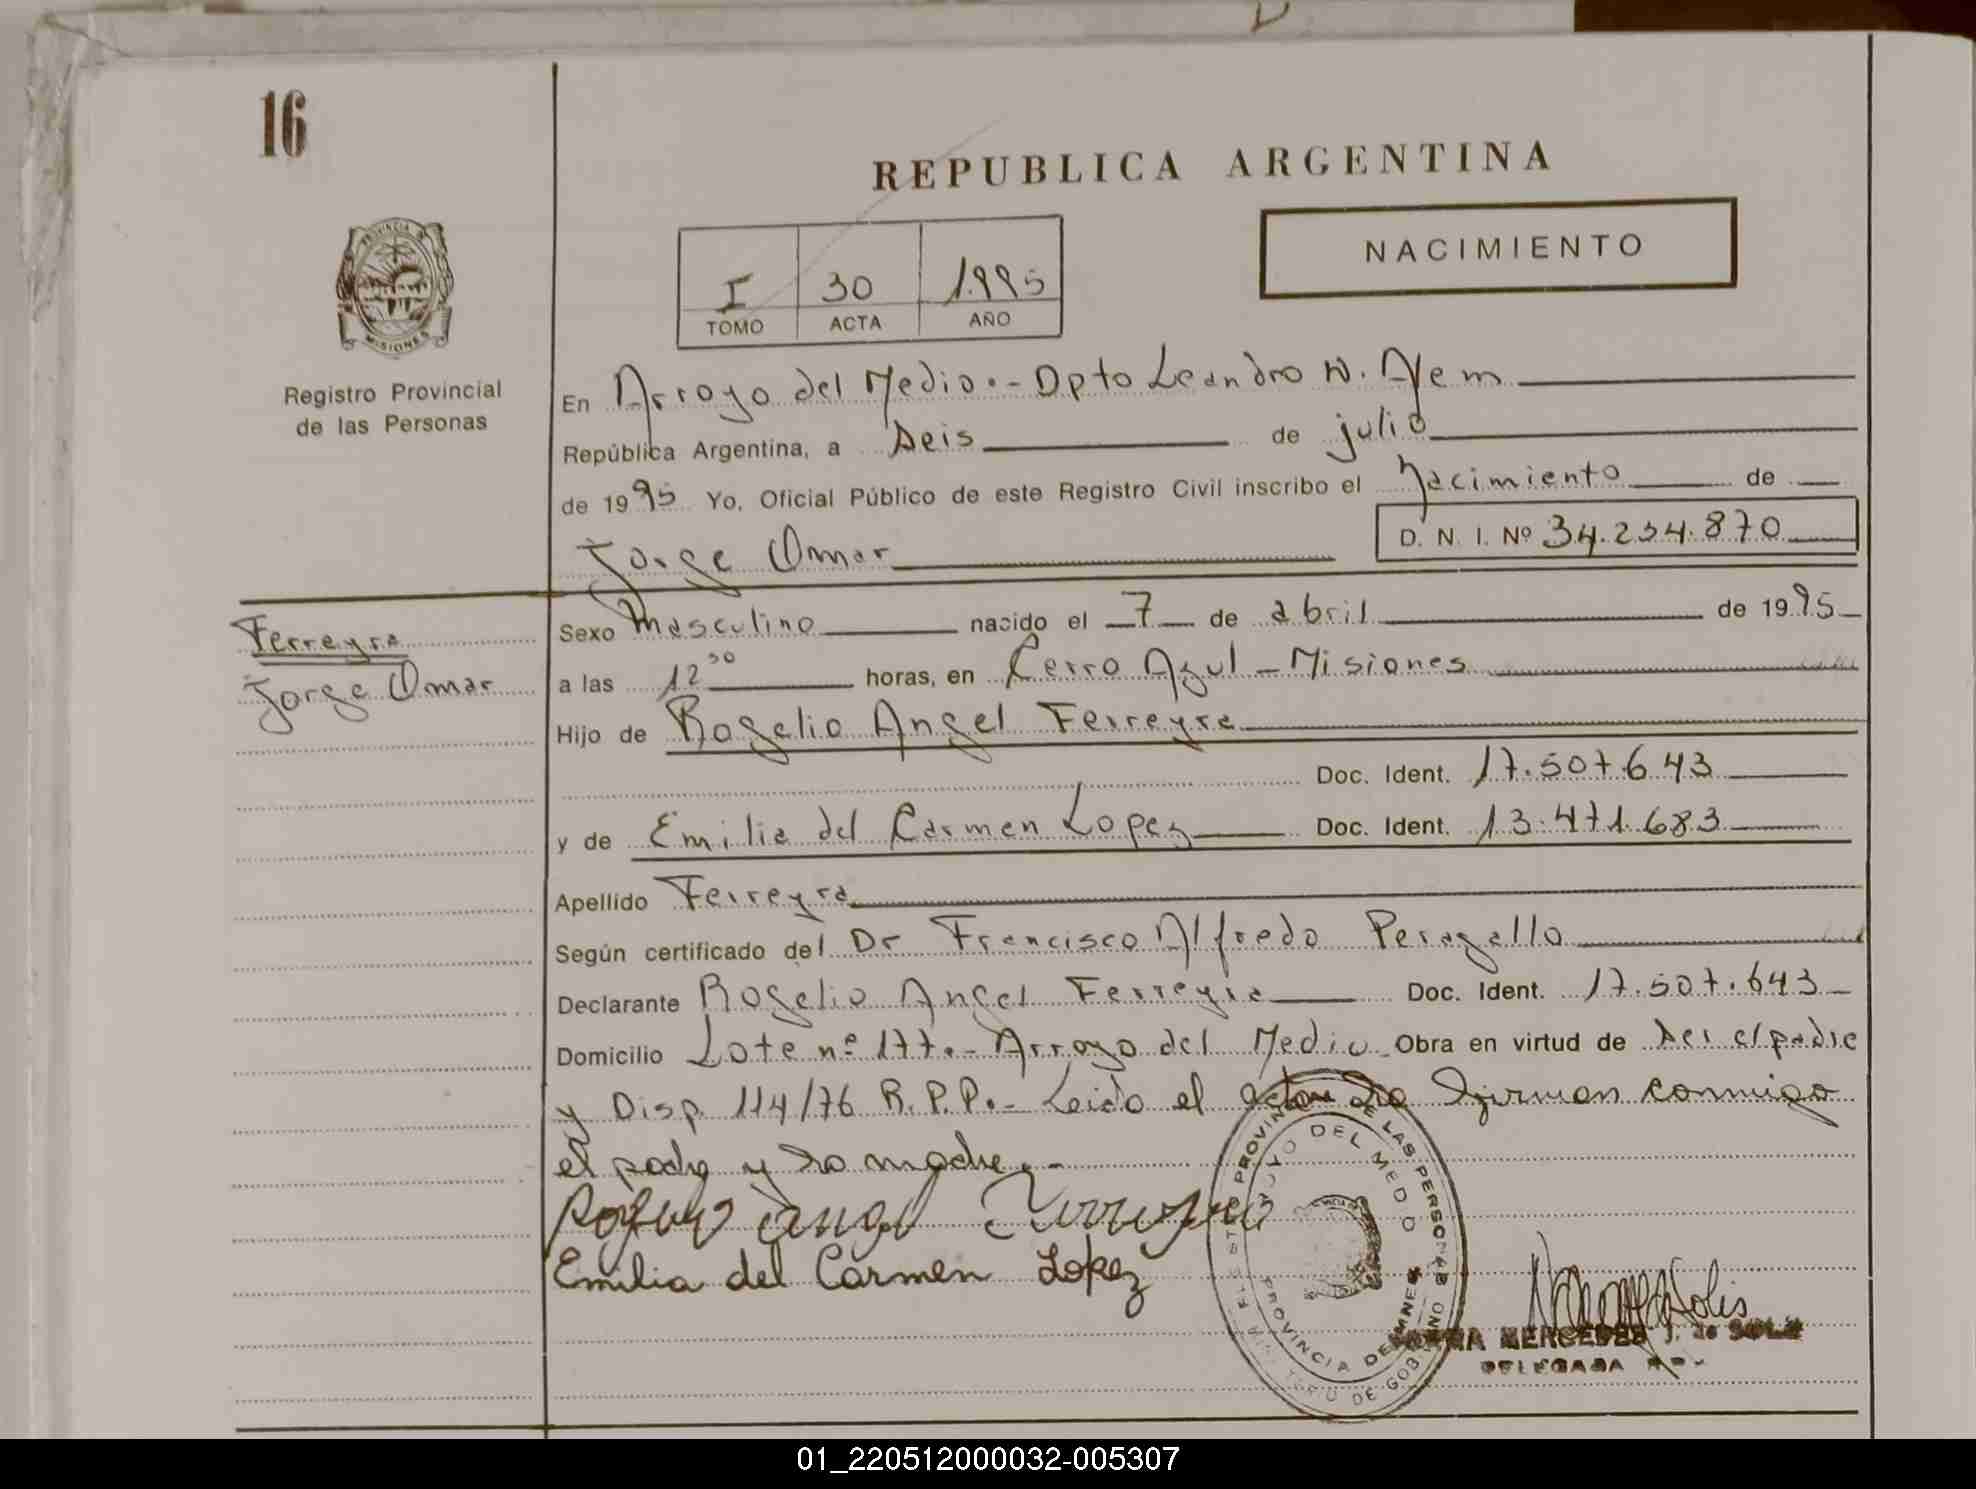 16
REPUBLICA ARGENTINA
NACIMIENTO
I 30 1.995
TOMO ACTA AÑO
PROVINCIA D MISIONES
Registro Provincial
de las Personas
En Arroyo del Medio.- Dpto Leandro N. Alem
República Argentina, a seis de julio
de 1995 Yo, Oficial Público de este Registro Civil inscribo el Nacimiento de
Jorge Omar D. N. I. Nº 34.234.870
Ferreyra
Jorge Omar
Sexo Masculino nacido el 7 de abril de 1995
a las 12 30 horas, en Cerro Azul - Misiones
Hijo de Rogelio Angel Ferreyra
Doc. Ident. 17.507.643
y de Emilia del Carmen Lopez Doc. Ident. 13.471.683
Apellido Ferreyra
Según certificado del Dr Francisco Alfredo Peragallo
Declarante Rogelio Angel Ferreyra Doc. Ident. 17.507.643
Domicilio Lote nº 177.- Arroyo del Medio Obra en virtud de ser el padre
y Disp. 114/76 R.P.P.- Leido el acta la firman conmigo
el padre y la madre.-
Rogelio Angel Ferreyra
Emilia del Carmen Lopez
PROVIN DE LAS PERSONAS
YO DEL MEDIO
PROVINCIA DE MISIONES
MINISTERIO DE GOBIERNO
Solis
MERCEDES J. de SOLIS
DELEGADA
01_220512000032-005307